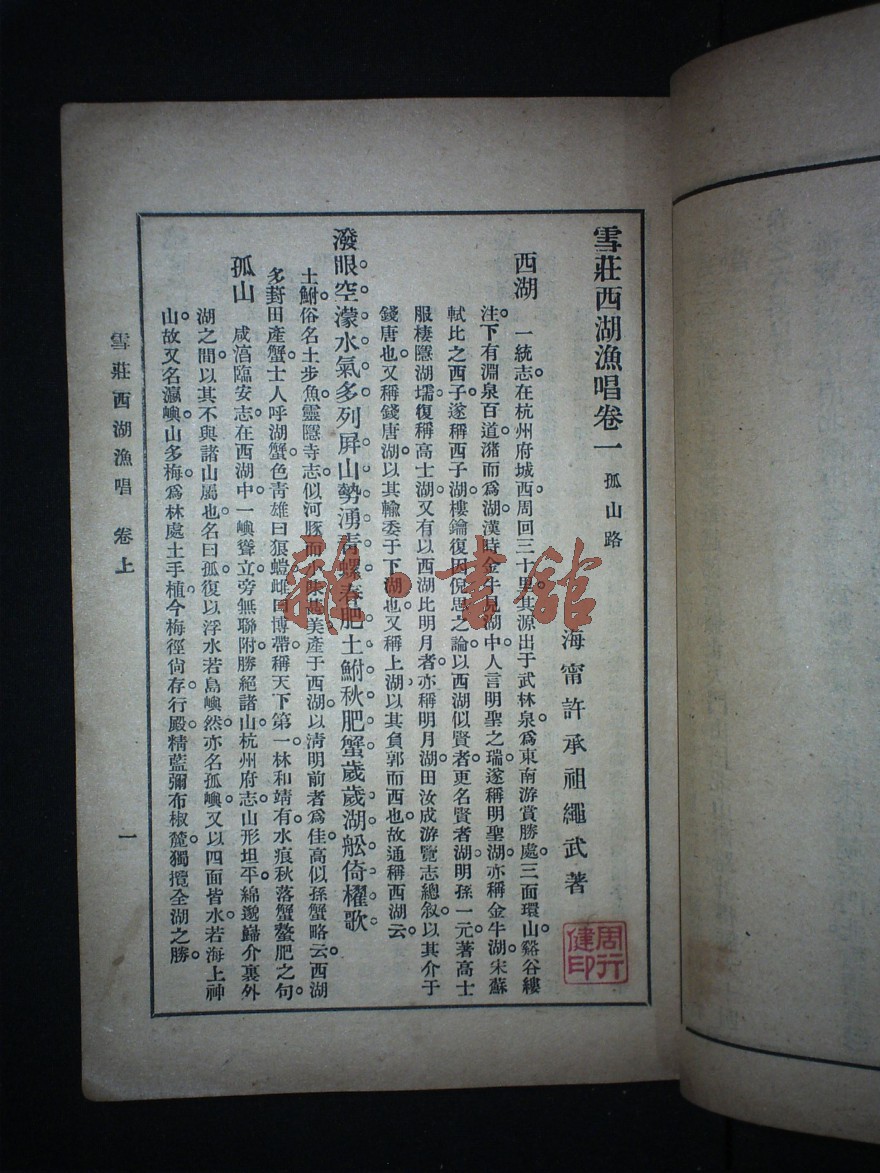 雪莊西湖漁唱卷一 孤山路
海甯許承祖繩武著
西湖 一統志在杭州府城西周回三十里其源出于武林泉爲東南游賞勝處三面環山谿谷縷
注下有淵泉百道潴而爲湖漢時金牛見湖中人言明聖之瑞遂稱明聖湖亦稱金牛湖宋蘇
軾比之西子遂稱西子湖樓鑰復因倪思之論以西湖似賢者更名賢者湖明孫一元著高士
服棲隱湖壖復稱高士湖又有以西湖比明月者亦稱明月湖田汝成游覽志總敘以其介于
錢唐也又稱錢唐湖以其輸委于下湖也又稱上湖以其負郭而西也故通稱西湖云
潑眼空濛水氣多列屏山勢湧青螺春肥土鮒秋肥蟹歲歲湖舩倚櫂歌
土鮒俗名土步魚靈隱寺志似河豚而小味甚美產于西湖以清明前者爲佳高似孫蟹略云西湖
多葑田產蟹士人呼湖蟹色青雄曰狼螘雌曰博帶稱天下第一林和靖有水痕秋落蟹螯肥之句
孤山 咸淳臨安志在西湖中一嶼聳立旁無聯附勝絕諸山杭州府志山形坦平綿邈歸介裏外
湖之間以其不與諸山屬也名曰孤復以浮水若島嶼然亦名孤嶼又以四面皆水若海上神
山故又名瀛嶼山多梅爲林處士手植今梅徑尙存行殿精藍彌布椒麓獨攬全湖之勝
雪莊西湖漁唱 卷上
一
周行健印
雜·書館